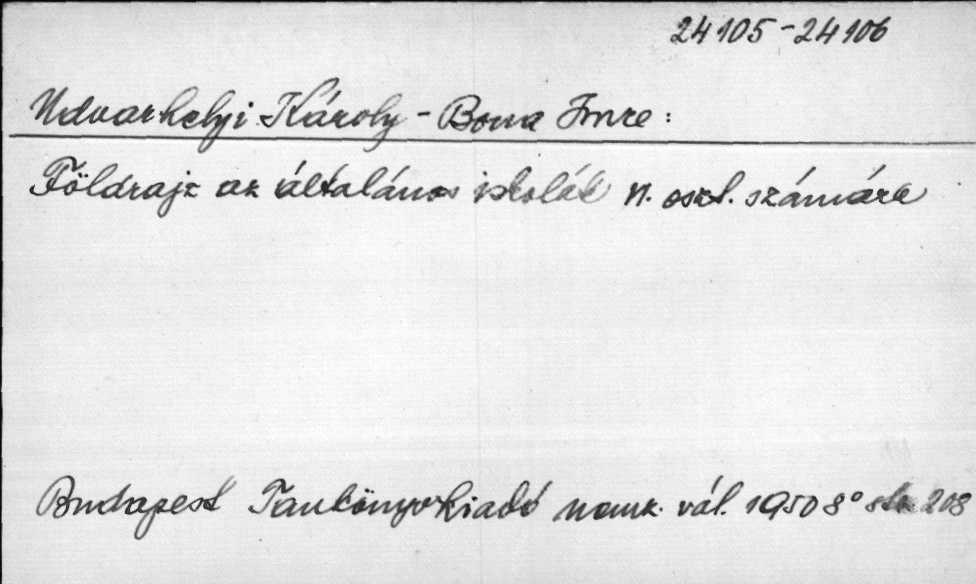 24105-24106
Udvarhelyi Károly - Bona Imre:
Földrajz az általános iskolák n. oszt. számára
Budapest Tankönyvkiadó nemz. vál. 1950 8° 208